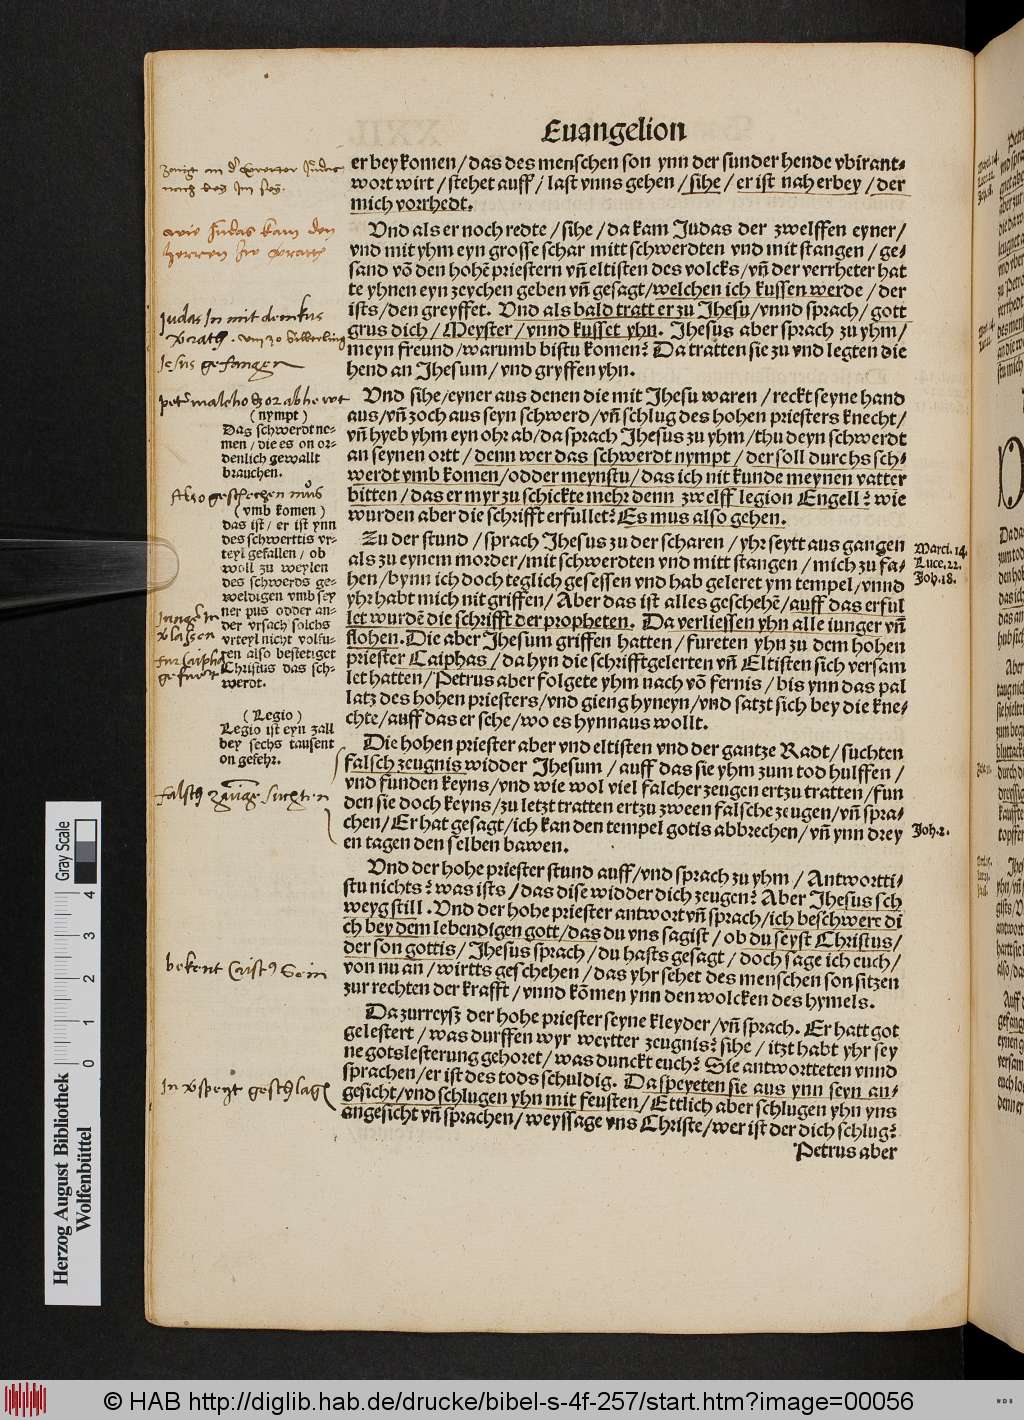 Euangelion
er bey komen/das des menschen son ynn der sunder hende vbirant-
wort wirt/stehet auff/last vnns gehen/sihe/er ist nah erbey/der
mich vorrhedt.
Vnd als er noch redte/sihe/da kam Judas der zwelffen eyner/
vnd mit yhm eyn grosse schar mitt schwerdten vnd mit stangen/ge-
sand võ den hohẽ priestern vñ eltisten des volcks/vñ der verrheter hat
te yhnen eyn zeychen geben vñ gesagt/welchen ich kussen werde/der
ists/den greyffet. Vnd als bald tratt er zu Jhesu/vnnd sprach/gott
grus dich/Meyster/vnnd kusset yhn. Jhesus aber sprach zu yhm/
meyn freund/warumb bistu komen? Da tratten sie zu vnd legten die
hend an Jhesum/vnd gryffen yhn.
Vnd sihe/eyner aus denen die mit Jhesu waren/reckt seyne hand
aus/vñ zoch aus seyn schwerd/vñ schlug des hohen priesters knecht/
vñ hyeb yhm eyn ohr ab/da sprach Jhesus zu yhm/thu deyn schwerdt
an seynen ortt/denn wer das schwerdt nympt/der soll durchs sch-
werdt vmb komen/odder meynstu/das ich nit kunde meynen vatter
bitten/das er myr zu schickte mehr denn zwelff legion Engell? wie
wurden aber die schrifft erfullet? Es mus also gehen.
Zu der stund/sprach Jhesus zu der scharen/yhr seytt aus gangen
als zu eynem morder/mit schwerdten vnd mitt stangen/mich zu fa-
hen/bynn ich doch teglich gesessen vnd hab geleret ym tempel/vnnd
yhr habt mich nit griffen/Aber das ist alles geschehẽ/auff das erful
let wurdẽ die schrifft der propheten. Da verliessen yhn alle iunger vñ
flohen. Die aber Jhesum griffen hatten/fureten yhn zu dem hohen
priester Caiphas/da hyn die schrifftgelerten vñ Eltisten sich versam
let hatten/Petrus aber folgete yhm nach võ fernis/bis ynn das pal
latz des hohen priesters/vnd gieng hyneyn/vnd satzt sich bey die kne-
chte/auff das er sehe/wo es hynnaus wollt.
Die hohen priester aber vnd eltisten vnd der gantze Radt/suchten
falsch zeugnis widder Jhesum/auff das sie yhm zum tod hulffen/
vnd funden keyns/vnd wie wol viel falcher zeugen ertzu tratten/fun
den sie doch keyns/zu letzt tratten ertzu zween falsche zeugen/vñ spra-
chen/Er hat gesagt/ich kan den tempel gotis abbrechen/vñ ynn drey
en tagen den selben bawen.
Vnd der hohe priester stund auff/vnd sprach zu yhm/Antwortti-
stu nichts? was ists/das dise widder dich zeugen? Aber Jhesus sch
weyg still. Vnd der hohe priester antwort vñ sprach/ich beschwere di
ch bey dem lebendigen gott/das du vns sagist/ob du seyst Christus/
der son gottis/Jhesus sprach/du hasts gesagt/doch sage ich euch/
von nu an/wirtts geschehen/das yhr sehet des menschen son sitzen
zur rechten der krafft/vnnd kõmen ynn den wolcken des hymels.
Da zurreysz der hohe priester seyne kleyder/vñ sprach. Er hatt got
gelestert/was durffen wyr weytter zeugnis? sihe/itzt habt yhr sey
ne gotslesterung gehoret/was dunckt euch? Sie antwortteten vnnd
sprachen/er ist des tods schuldig. Da speyeten sie aus ynn seyn an-
gesicht/vnd schlugen yhn mit feusten/Ettlich aber schlugen yhn yns
angesicht vñ sprachen/weyssage vns Christe/wer ist der dich schlug?
Petrus aber
wie Judas kam den
herren
Judas In mit dem kus
Jesus gefangen
(nympt)
Das schwerdt ne-
men/die es on or-
denlich gewallt
brauchen.
Also geschechen mus
(vmb komen)
das ist/er ist ynn
des schwerttis vr-
teyl gefallen/ob
woll zu weylen
des schwerds ge-
weldigen vmb sey
ner pus odder an-
der vrsach solchs
vrteyl nicht volfu-
ren also bestetiget
Christus das sch-
werdt.
(Legio)
Legio ist eyn zall
bey sechs tausent
on gefehr.
Marci. 14.
Luce. 22.
Joh. 18.
Joh. 2.
Gray Scale
4
3
2
1
0
Herzog August Bibliothek
Wolfenbüttel
© HAB http://diglib.hab.de/drucke/bibel-s-4f-257/start.htm?image=00056